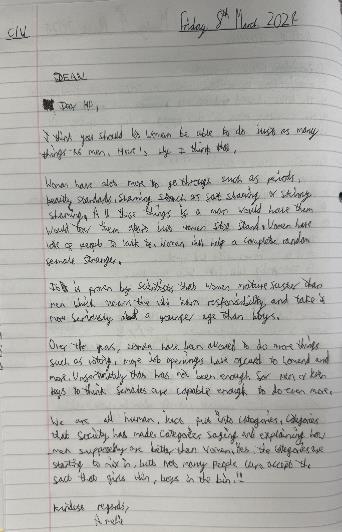 C/W
Friday 8th March 2024
DEAR
Dear MP,
I think you should let women be able to do just as many
things as men. Here's why I think this.
Women have alot more to go through such as periods,
beauty standards, shaming such as fat shaming or skinny
shaming. All these things to a man would have them
would have them but women still stand. Women have
lots of people to talk to, women will help a complete random
female stranger.
It is proven by scientists that women mature faster than
men which means they learn responsibility and take it
more seriously at a younger age than boys.
Over the years, women have been allowed to do more things
such as voting, more job openings have opened to women and
more. Unfortunately this has not been enough for men or even
boys to think females are capable enough to do even more.
We are all human, just put into categories, categories
that society has made. Categories saying and explaining how
men supposedly are better than women. Yes, the categories are
starting to mix in, but not many people can accept the
fact that girls win, boys in the bin!!
Kindest regards,